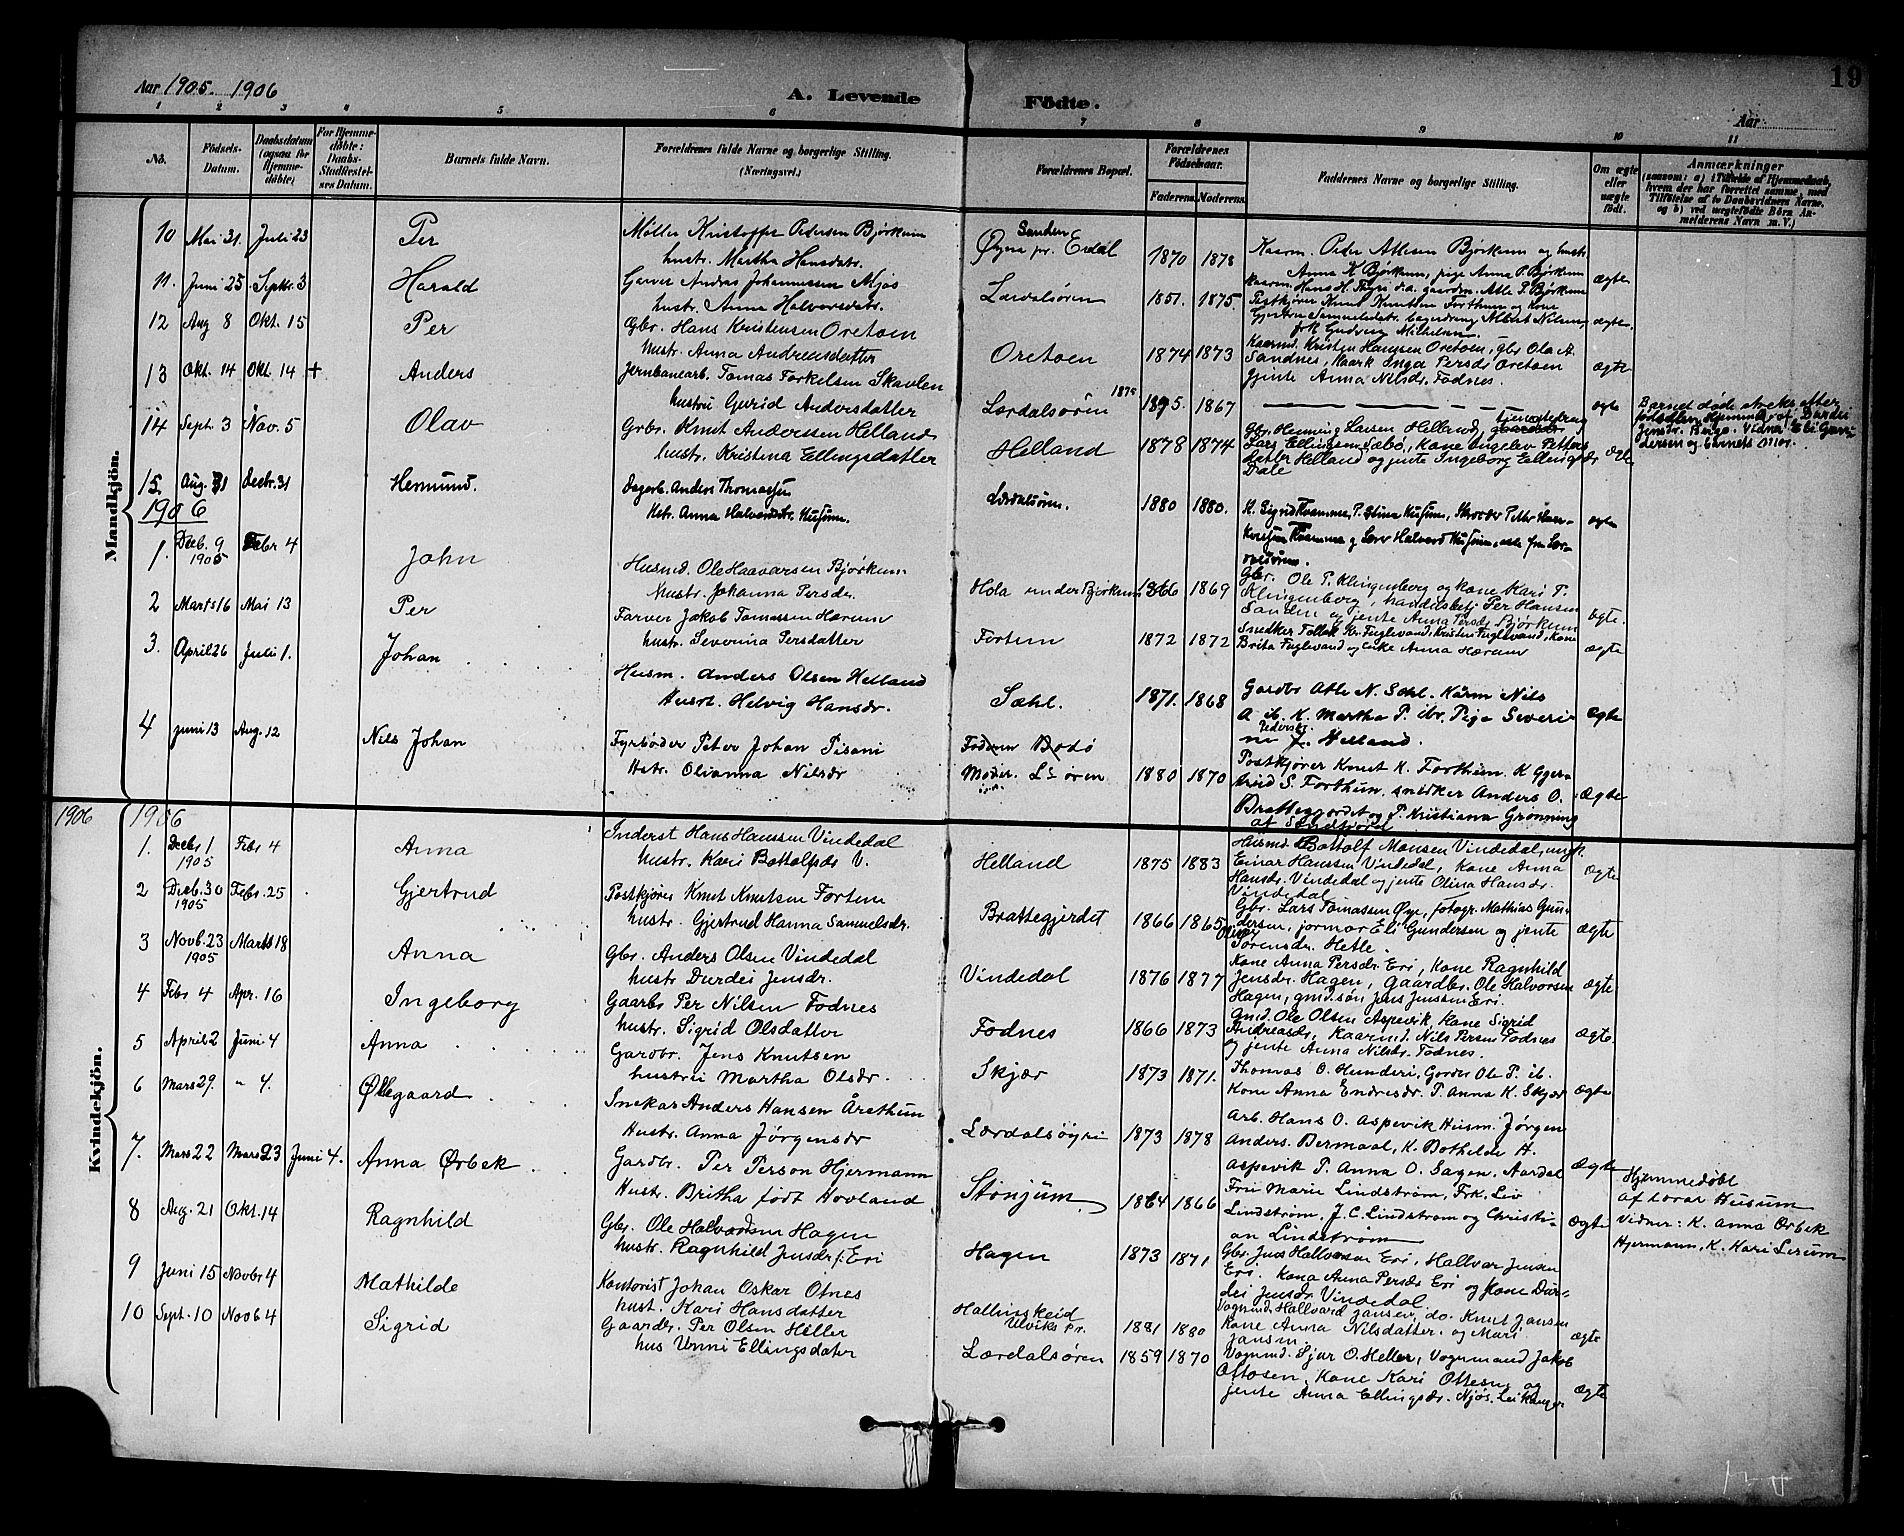 Aar 1905 1906
A. Levende Födte.
19
Aar
1 2 3 4 5 6 7 8 9 10 11
No.
Födsels-Datum.
Daabsdatum (ogsaa for Hjemmedöbte)
For Hjemmedöbte: Daabs-Stadfæstelses Datum.
Barnets fulde Navn.
Forældrenes fulde Navne og borgerlige Stilling. (Næringsvei.)
Forældrenes Bopæl.
Forældrenes Födselsaar.
Faderens Moderens
Faddernes Navne og borgerlige Stilling.
Om ægte eller uægte födt.
Anmærkninger
(saasom: a) i Tilfælde af Hjemmedaab, hvem der har forrettet samme, med Tilföielse af to Daabsvidners Navne, og b) ved uægtefödte Börn Anmelderens Navn m. V.)
Mandkjön.
10 Mai 31. Juli 23 Per
Møller Kristoffer Pedersen Bjørkum
hustr. Martha Hansdatr.
Sanden
Øyra pr. Erdal 1870 1878
Kaarm. Peder Atlesen Bjørkum og hustr.
Anna K Bjørkum, pige Anna P. Bjørkum
ægte
11. Juni 25 Septbr. 3 Harald
Garver Andras Johannessen Mjøs
hustr. Anna Halvorsdatr.
Lærdalsören 1851. 1875.
Postkjører Knud Knutsen Forthun og kone
ægte.
12 Aug 8 Okt. 15 Per
Gbr. Hans Kristensen Oretoen
hustr. Anna Andreasdatter
Oretoen 1874 1873
Kaarmd. Kristen Hanssen Oretoen, gbr Ola A.
Sandnes, Kaark Inga Persdr Oretoen
Jjente Anna Nilsdr. Fodnes.
ægte
13 Okt. 14 Okt. 14 + Anders
Jernbanearb. Tomas Torkelsen Skavlen
hustru Gurid Andersdatter
Lærdalsören 1875 1895. 1867
ægte
Barnet døde straks efter
fødselen, Hjemmed. af Durdei
Jensdr. Berge. Vidne Eli Gun-
dersen og barnets mor.
14 Sept. 3 Nov. 5 Olav
Grbr. Knut Anderssen Helland
hustr. Kristina Ellingsdatter
Helland 1878 1874
Gbr. Henning Larsen Helland,
Lars Ellingsen Sæbø, Kone Angelev Petters
datter Helland og jente Ingeborg Ellingsdr
Dale
ægte
15. Aug. 31 Decbr. 31 Hermund.
Dagarb. Anders Thomassen
Hstr. Anna Halvordsdtr. Husum.
Lærdalsören. 1880 1880.
K. Sigrid Kvamme, P. Stina Husum,
ægte
1906
1. Decb. 9 1905 Febr 4 John
Husmd. Ole Haavarsen Bjørkum
hustr. Johanna Persdr.
Hola under Bjørkum 1866 1869
Gbr. Ole P. Klingenberg og kone Kari P.
Klingenberg, handelsbetj Per Hansen
Sanden og jente Anna Persdr Bjørkum
ægte.
2 Marts 16 Mai 13 Per
Farver Jakob Tomassen Hærum
hustr. Severina Persdatter
Fortun 1872 1872
Snedker Fallak Kr. Fuglevand, Kristen Fuglevand, Kone
Brita Fuglevand og enke Anna Hærum
ægte
3. April 26 Juli 1. Johan
Husm. Anders Olsen Helland
Hustr. Helvig Hansdr.
Sæhl. 1871. 1868
Gardbr Atle N. Sæhl. Kårm Nils
A ib. K. Martha P. ibr, Pige Severi-
ne Pedersdr. Helland.
ægte
4 juni 13 Aug. 12 Nils Johan
Fyrbøder Peter Johan Pisani
Hstr. Olianna Nilsdr
Faderen Bodö
Moder. L.ören 1880 1870
Postkjører Knut K. Forthun. K Gjer-
trud S. Forthun, snedker Anders O.
Brattegjerdet og P. Kristiana Grønning
af Sundfjord
Ægte
Kvindekjön.
1906 1906
1. Decbr 1 1905 Febr 4 Anna
Inderst Hans Hanssen Vindedal
hustr. Kari Bottolfsdr V.
Helland 1875 1883
Husmd Bottolf Monsen Vindedal, ungk.
Einar Hanssen Vindedal, Kone Anna
Hansdr. Vindedal og jente Olina Hansdr.
Vindedal
ægte
2 Decb. 30 1905 Febr. 25 Gjertrud
Postkjører Knut Knutsen Fortun
hustr. Gjertrud Hanna Samuelsdr.
Brattegjerdet 1866 1865
Gbr. Lars Tomassen Øye, fotogr. Mathias Gun-
dersen, jormor Eli Gundersen og jente
Oline Sørensdr. Hetle.
ægte
3 Novb. 23 1905 Marts 18 Anna
Gbr. Anders Olsen Vindedal
hustr Durdei Jensdr.
Vindedal 1876 1877
Kone Anna Persdr. Eri, Kone Ragnhild
Jensdr. Hagen, Gaardbr. Ole Halvorsen
Hagen, gmd.søn Jens Jenssen Eri.
ægte
4 Febr 4 Apr. 16 Ingeborg
Gaarbr Per Nilsen Fodnes
hustr. Sigrid Olsdatter
Fodnes 1866 1873
Gmd. Ole Olsen Aspevik, Kone Sigrid
Andreasdr, Kaarmd. Nils Persen Fodnes
og jente Anna Nilsdr. Fodnes.
ægte.
5 April 2 Juni 4 Anna
Gardbr. Jens Knutsen
hustru Martha Olsdr.
Skjær 1873 1871.
Thomas O. Hunderi, Gardbr Ole P. ib.
Kone Anna Endresdr. P. Anna K. Skjær
ægte
6 Mars 29. " 4. Ølegaard
Snekar Anders Hansen Årethun
Hustr. Anna Jørgensdr
Lærdalsøyri 1873 1878
Arb. Hans O. Aspevik Husm. Jørgen
Anders. Bermaal, K. Bothilde H.
Aspevik P. Anna O. Sagen, Aardal
Ægte
7. Mars 22 Mars 23 Juni 4. Anna Ørbek
Gardbr. Per Person Hjermann
Hustr. Britha født Hovland
Stönjum 1864 1866
Fru Marie Lindstrøm, Frk. Liv
Lindstrøm, J. C. Lindstrøm og Christi-
an Lindstrøm
ægte
Hjemmedøbt
af Lærar Husum
Vidner: K. Anna Ørbek
Hjermann, K. Kari Lerum
8 Aug. 21 Okt. 14 Ragnhild
Gbr. Ole Halvordsen Hagen
hustr. Ragnhild Jensdr f. Eri
Hagen 1873 1871
Gbr. Jens Hallvorsen Eri, Hallvar Jensen
Eri. Kona Anna Persdr Eri og Kone Dur-
dei Jensdr Vindedal.
9 Juni 15 Novbr 4 Mathilde
Kontorist Johan Oskar Otnes
hust. Kari Hansdatter
Hallingskeid
Ulviks pr. 1881 1880
Vognmd. Hallvard Jansen, do. Knut Jansen
Kone Anna Nilsdatter. og Mari
Jansen.
ægte
10 Sept. 10 Novb 4 Sigrid
Gaardbr. Per Olsen Heller
hus Unni Ellingsdater
Lærdalsören 1859 1870
Vognmd. Sjur O. Heller, Vognmand Jakob
Ottosen, Kone Kari Ottesen og
jente Anna Ellingsdr. Njøs. Leikanger
ægte